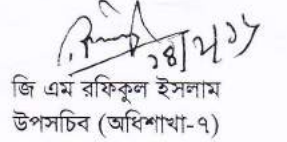 জি এম রফিকুল ইসলাম
উপসচিব (অধিশাখা-৭)